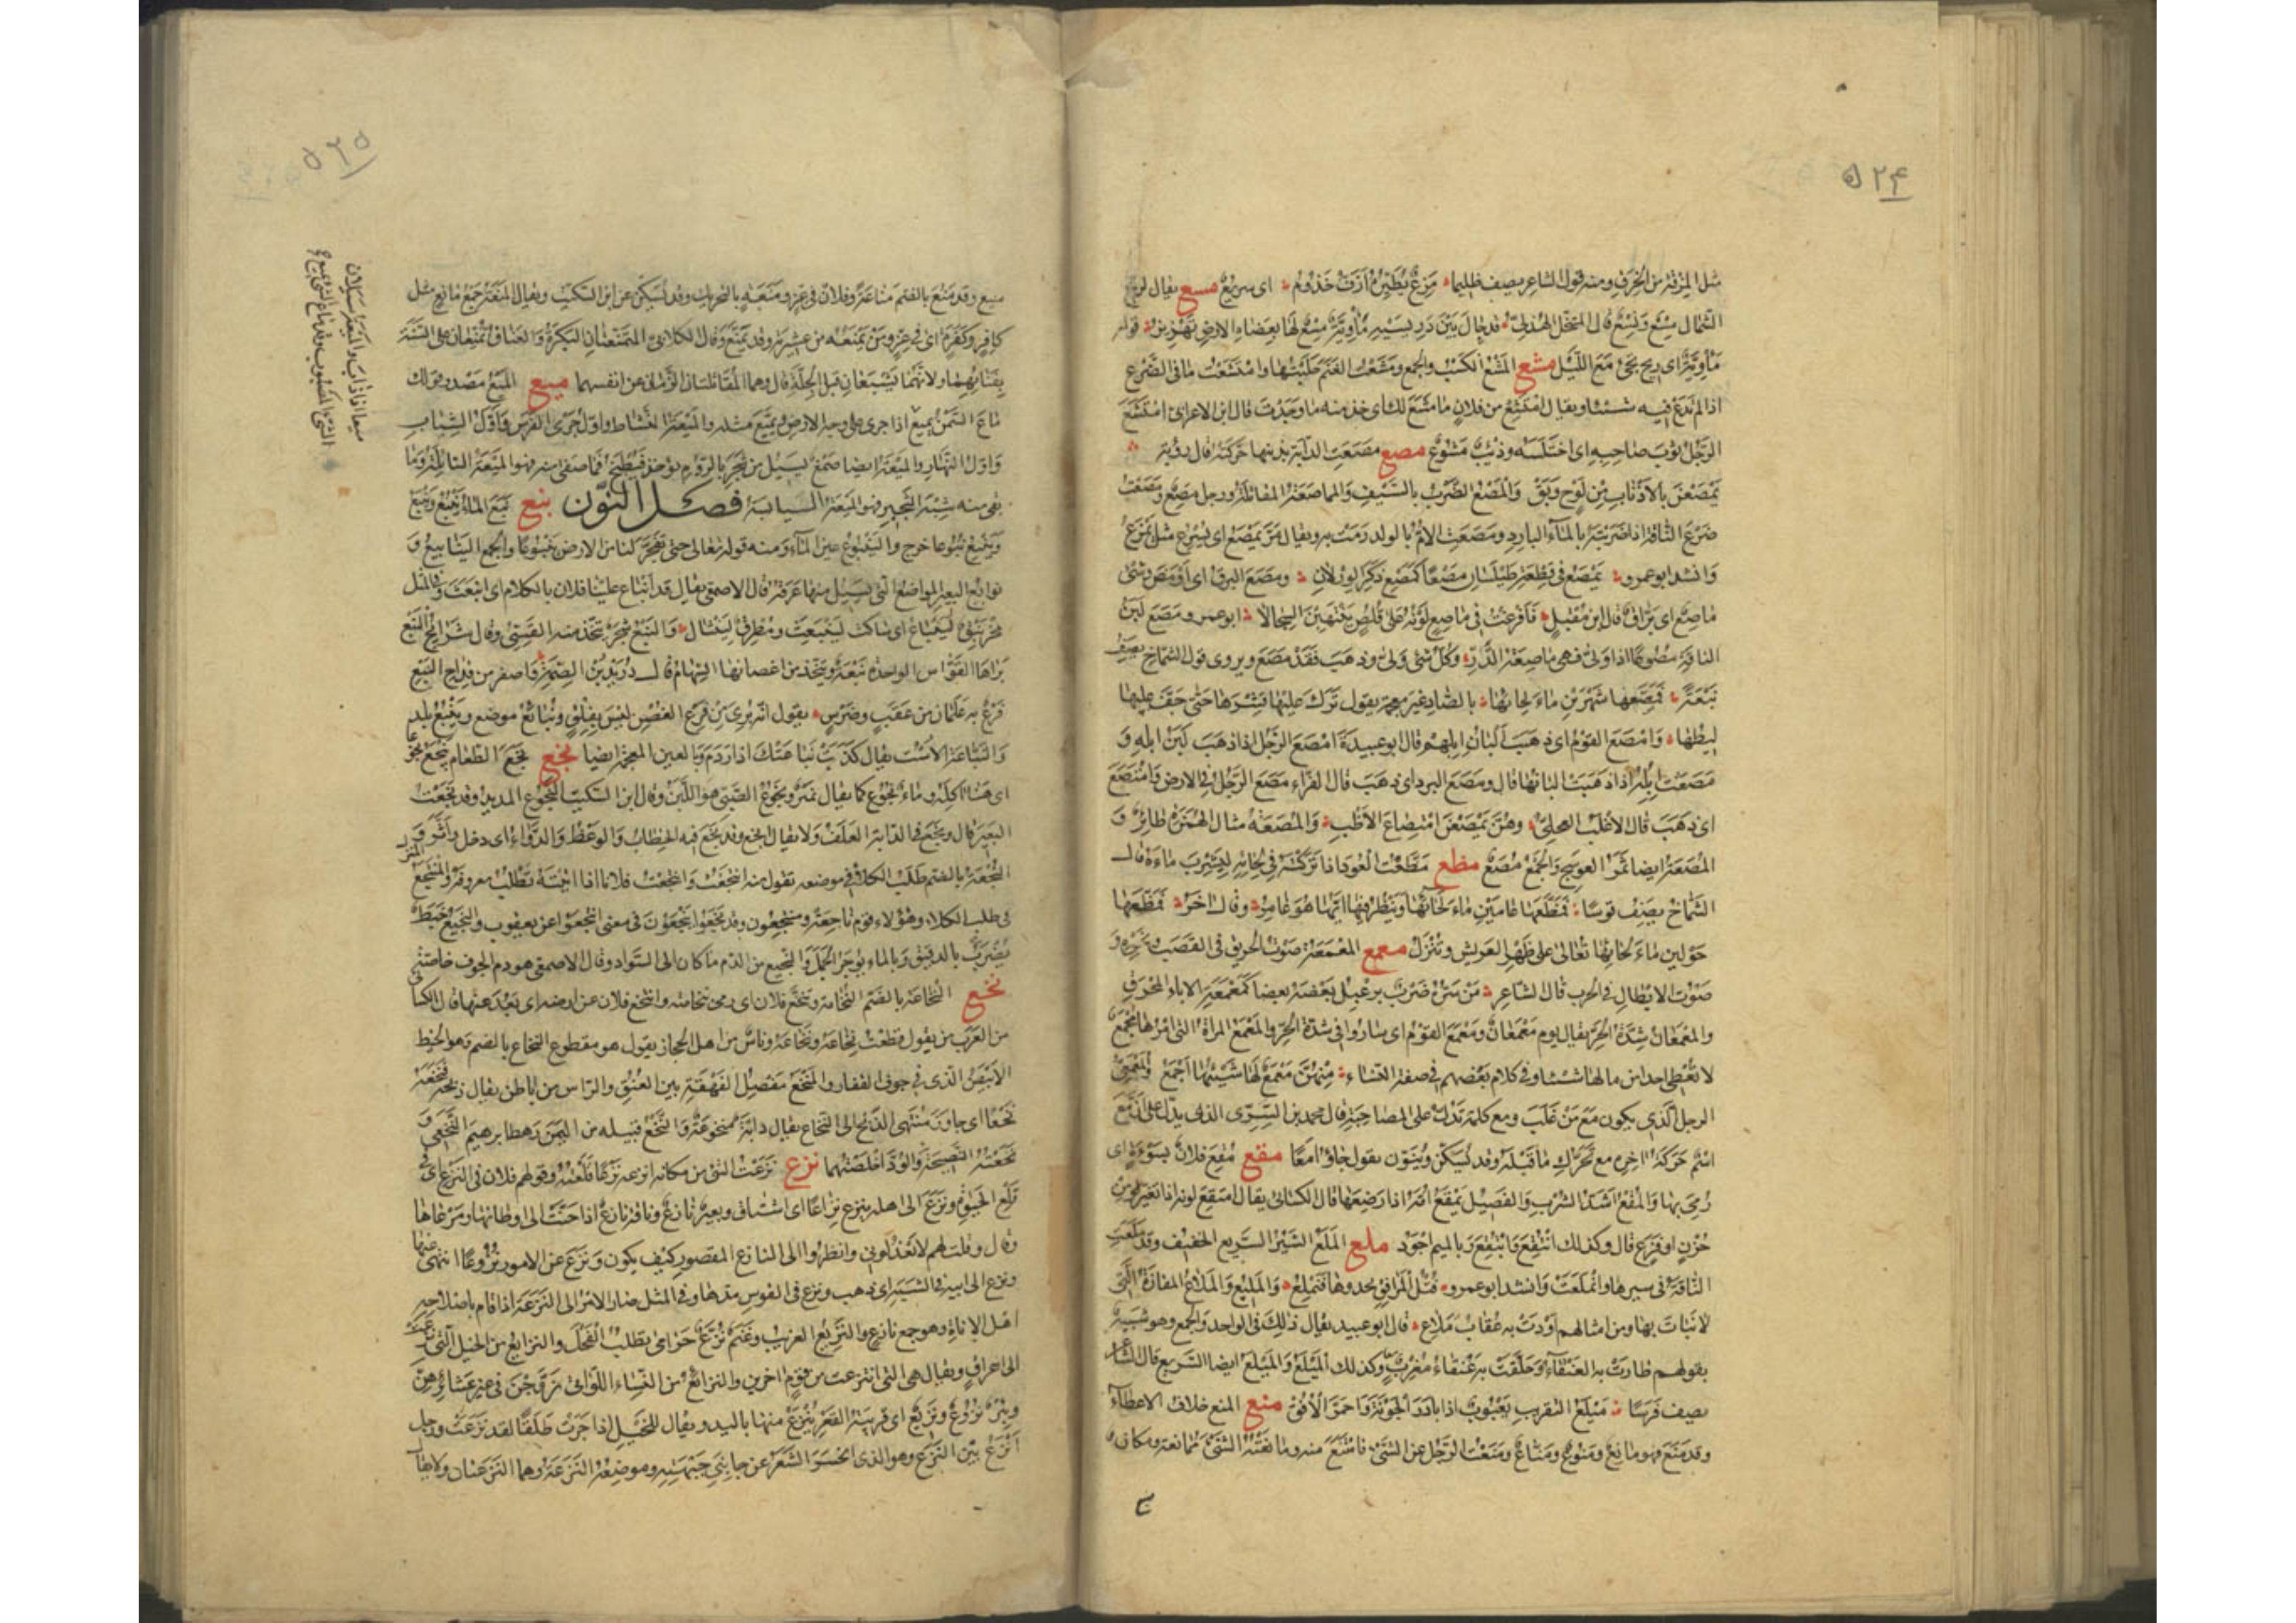 ۵۲۴
مثل المزقة من الخرق ومنه قول الشاعر يصف ظليما مزع يطيره ازف خذوم اى سريع مسع يقال لريح
الشمال مسع ونسع قال المتنخل الهذلى قد حال بين دريسيه مأوبة مسع لها بعضاه الارض تهزيز قوله
مأوبة اى ريح تجئ مع الليل مشع المشع الكسب والجمع ومشعت الغنم حلبتها وامتشعت ما فى الضرع
اذا لم تدع فيه شيئا ويقال امتشع من فلان ما مشع لك اى خذ منه ما وجدت قال ابن الاعرابى امتشع
الرجل ثوب صاحبه اى اختلسه وذئب مشوع مصع مصعت الدابة بذنبها حركته قال رؤبة
يمصعن بالاذناب من لوح وبق والمصع الضرب بالسيف والمماصعة المقاتلة ورجل مصع ومصعت
ضرع الناقة اذا ضربته بالماء البارد ومصعت الام بالولد رمت به ويقال مر يمصع اى يسرع مثل يمزع
وانشد ابو عمرو يمصع فى قطعة طيلسان مصعا كمصع ذكر الورلان ومصع البرق اى اومض وشئ
ماصع اى براق قال ابن مقبل فافرغت فى ماصع لونه على قلص ينتهبن السجالا ابو عمرو مصع لبن
الناقة مصوعا اذا ولى فهى ماصعة الدر وكل شئ ولى وذهب فقد مصع ويروى قول الشماخ يصف
نبعة فمصعها شهرين ماء لحائها بالصاد غير معجمة يقول ترك عليها قشرها حتى جف عليها
ليطها وامصع القوم اى ذهبت البان ابلهم قال ابو عبيدة امصع الرجل اذا ذهب لبن ابله و
مصعت ابله اذا ذهبت البانها قال ومصع البرد اى ذهب قال الفراء مصع الرجل فى الارض وامتصع
اى ذهب قال الاغلب العجلى وهن يمصعن امتصاع الاظب والمصعة مثال الهمزة طائر و
المصعة ايضا ثمر العوسج والجمع مصع مظع مظعت العود اذا تركته فى لحائه ليشرب ماءه قال
الشماخ يصف قوسا فمظعها عامين ماء لحائها وينظر فيها ايها هو غامز وقال اخر فمظعها
حولين ماء لحائها تعالى على ظهر العريش وتنزل معمع المعمعة صوت الحريق فى القصب ونحوه و
صوت الابطال فى الحرب قال الشاعر من سره ضرب يرعبل بعضه بعضا كمعمعة الاباء المحرق
والمعمعان شدة الحر يقال يوم معمعان ومعمع القوم اى ساروا فى شدة الحر والمعمع المراة التى امرها مجمع
لا تعطى احدا من مالها شيئا وفى كلام بعضهم فى صفة النساء منهن معمع لها شيئها اجمع والمعمعى
الرجل الذى يكون مع من غلب ومع كلمة تدل على المصاحبة قال محمد بن السرى الذى يدل على ان مع
اسم حركة اخره مع تحرك ما قبله وقد يسكن وينون يقول جاؤا معا مقع مقع فلان بسوءة اى
رمى بها والمقع اشد الشرب والفصيل يمقع امه اذا رضعها قال الكسائى يقال امتقع لونه اذا تغير من
حزن او فزع قال وكذلك انتقع وابتقع وبالميم اجود ملع الملع السير السريع الخفيف وقد ملعت
الناقة فى سيرها وانملعت وانشد ابو عمرو فتل المرافق يحدوها فتنملع والمليع والملاع المفازة التى
لا نبات بها ومن امثالهم اودت به عقاب ملاع قال ابو عبيد يقال ذلك فى الواحد والجمع وهو شبيه
بقولهم طارت به العنقاء وحلقت به عنقاء مغرب وكذلك الميلع والميلع ايضا السريع قال الشاعر
يصف فرسا ميلع التقريب يعبوب اذا بادر الجونة واحمر الافق منع المنع خلاف الاعطاء
وقد منع فهو مانع ومنوع ومناع ومنعت الرجل عن الشئ فامتنع منه ومانعته الشئ ممانعة ومكان
۵۲۵
منيع وقد منع بالضم مناعة وفلان فى عز ومنعة بالتحريك وقد يسكن عن ابن السكيت ويقال المنعة جمع مانع مثل
كافر وكفرة اى فى عز ومن يمنعه من عشيرته وقد تمنع وقال الكلابى المتمنعتان البكرة والعناق تمنعان على السنة
بفتائهما ولانهما تشبعان قبل الجلة قال وهما المقاتلتان الزمان عن انفسهما ميع الميع مصدر قولك
ماع السمن يميع اذا جرى على وجه الارض وتميع مثله والميعة النشاط واول جرى الفرس واول الشباب
واول النهار والميعة ايضا صمغ يسيل من شجر بالروم يؤخذ فيطبخ فما صفا منه فهو الميعة السائلة وما
بقى منه شبه الثجير فهو الميعة اليابسة فصل النون نبع نبع الماء ينبع وينبع
وينبع نبوعا خرج والينبوع عين الماء ومنه قوله تعالى حتى تفجر لنا من الارض ينبوعا والجمع الينابيع و
نوابع البعير المواضع التى يسيل منها عرقه قال الاصمعى يقال قد انباع علينا فلان بالكلام اى انبعث وفى المثل
مخرنبق لينباع اى ساكت لينبعث ومطرق لينثال والنبع شجر يتخذ منه القسى وقال شرائج النبع
براها القواس الواحدة نبعة ويتخذ من اغصانها السهام قال دريد بن الصمة واصفر من قداح النبع
فرع به علمان من عقب وضرس يقول انه برى من فرع الغصن ليس بفلق ونبايع موضع وينبع بلد
والنباعة الاست يقال كذبت نباعتك اذا ردم وبالغين المعجمة ايضا نجع نجع الطعام ينجع نجوعا
اى هنأ اكله وماء نجوع كما يقال نمير ونجوع الصبى هو اللبن وقال ابن السكيت النجوع المديد وقد نجعت
البعير قال ونجع فى الدابة العلف ولا يقال انجع وقد نجع فيه الخطاب والوعظ والدواء اى دخل واثر و
النجعة بالضم طلب الكلا فى موضعه تقول منه انتجعت وانتجعت فلانا اذا اتيته تطلب معروفه والمنتجع المنزل
فى طلب الكلاء وهؤلاء قوم ناجعة ومنتجعون وقد نجعوا ينجعون فى معنى انتجعوا عن يعقوب والنجيع خبط
يضرب بالدقيق وبالماء يوجر الجمل والنجيع من الدم ما كان الى السواد وقال الاصمعى هو دم الجوف خاصة
نخع النخاعة بالضم النخامة وتنخع فلان اى رمى نخامته وانتخع فلان عن ارضه اى بعد عنها قال الكسائى
من العرب من يقول قطعت نخاعه ونخاعه وناس من اهل الحجاز يقول هو مقطوع النخاع بالضم وهو الخيط
الابيض الذى فى جوف الفقار والمنخع مفصل الفهقة بين العنق والراس من باطن يقال ذبحه فنخعه
نخعا اى جاوز منتهى الذبح الى النخاع يقال دابة منخوعة والنخع قبيلة من اليمن رهط ابرهيم النخعى و
نخعته النصيحة والود اخلصتهما نزع نزعت الشئ من مكانه انزعه نزعا قلعته وقولهم فلان فى النزع اى فى
قلع الحيوة ونزع الى اهله ينزع نزاعا اى اشتاق وبعير نازع وناقة نازع اذا حنت الى اوطانها ومرعاها
وقال وقلت لهم لا تعذلونى وانظروا الى النازع المقصور كيف يكون ونزع عن الامور نزوعا انتهى عنها
ونزع الى ابيه فى الشبه اى ذهب ونزع فى القوس مدها وفى المثل صار الامر الى النزعة اذا قام باصلاحه
اهل الاناة وهو جمع نازع والنزيع الغريب وغنم نزع حرامى يطلب الفحل والنزائع من الخيل التى نزعت
الى اعراق ويقال هى التى انتزعت من قوم اخرين والنزائع من النساء اللواتى يزوجن فى غير عشائرهن
وبئر نزوع ونزيع اى قريبة القعر ينزع منها باليد ويقال للخيل اذا جرت طلقا لقد نزعت ورجل
انزع بين النزع وهو الذى انحسر الشعر عن جانبى جبهته وموضعه النزعة وهما النزعتان ولا يقال